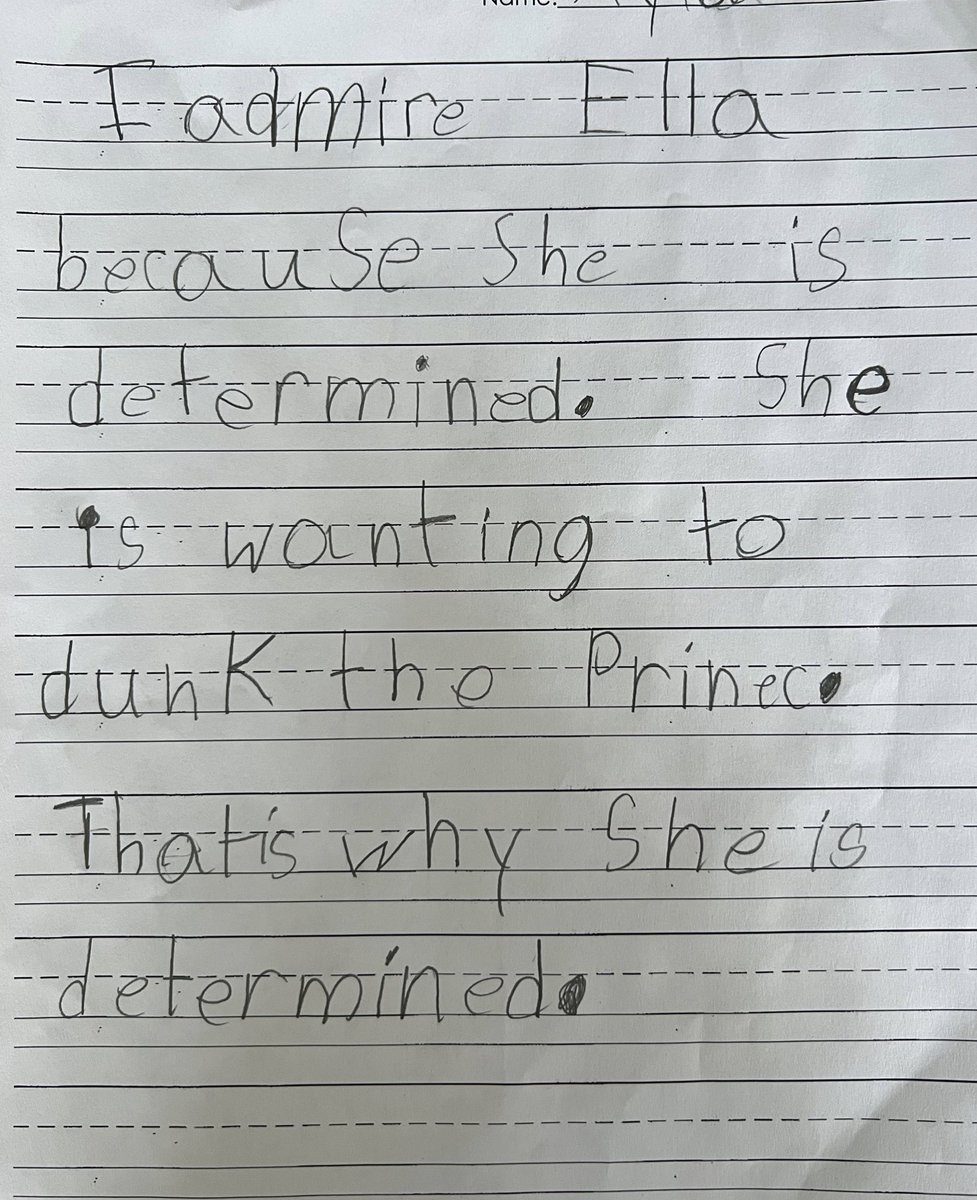 I admire Ella
because She is
determined. She
is wanting to
dunk the Prinec.
That is why She is
determined.